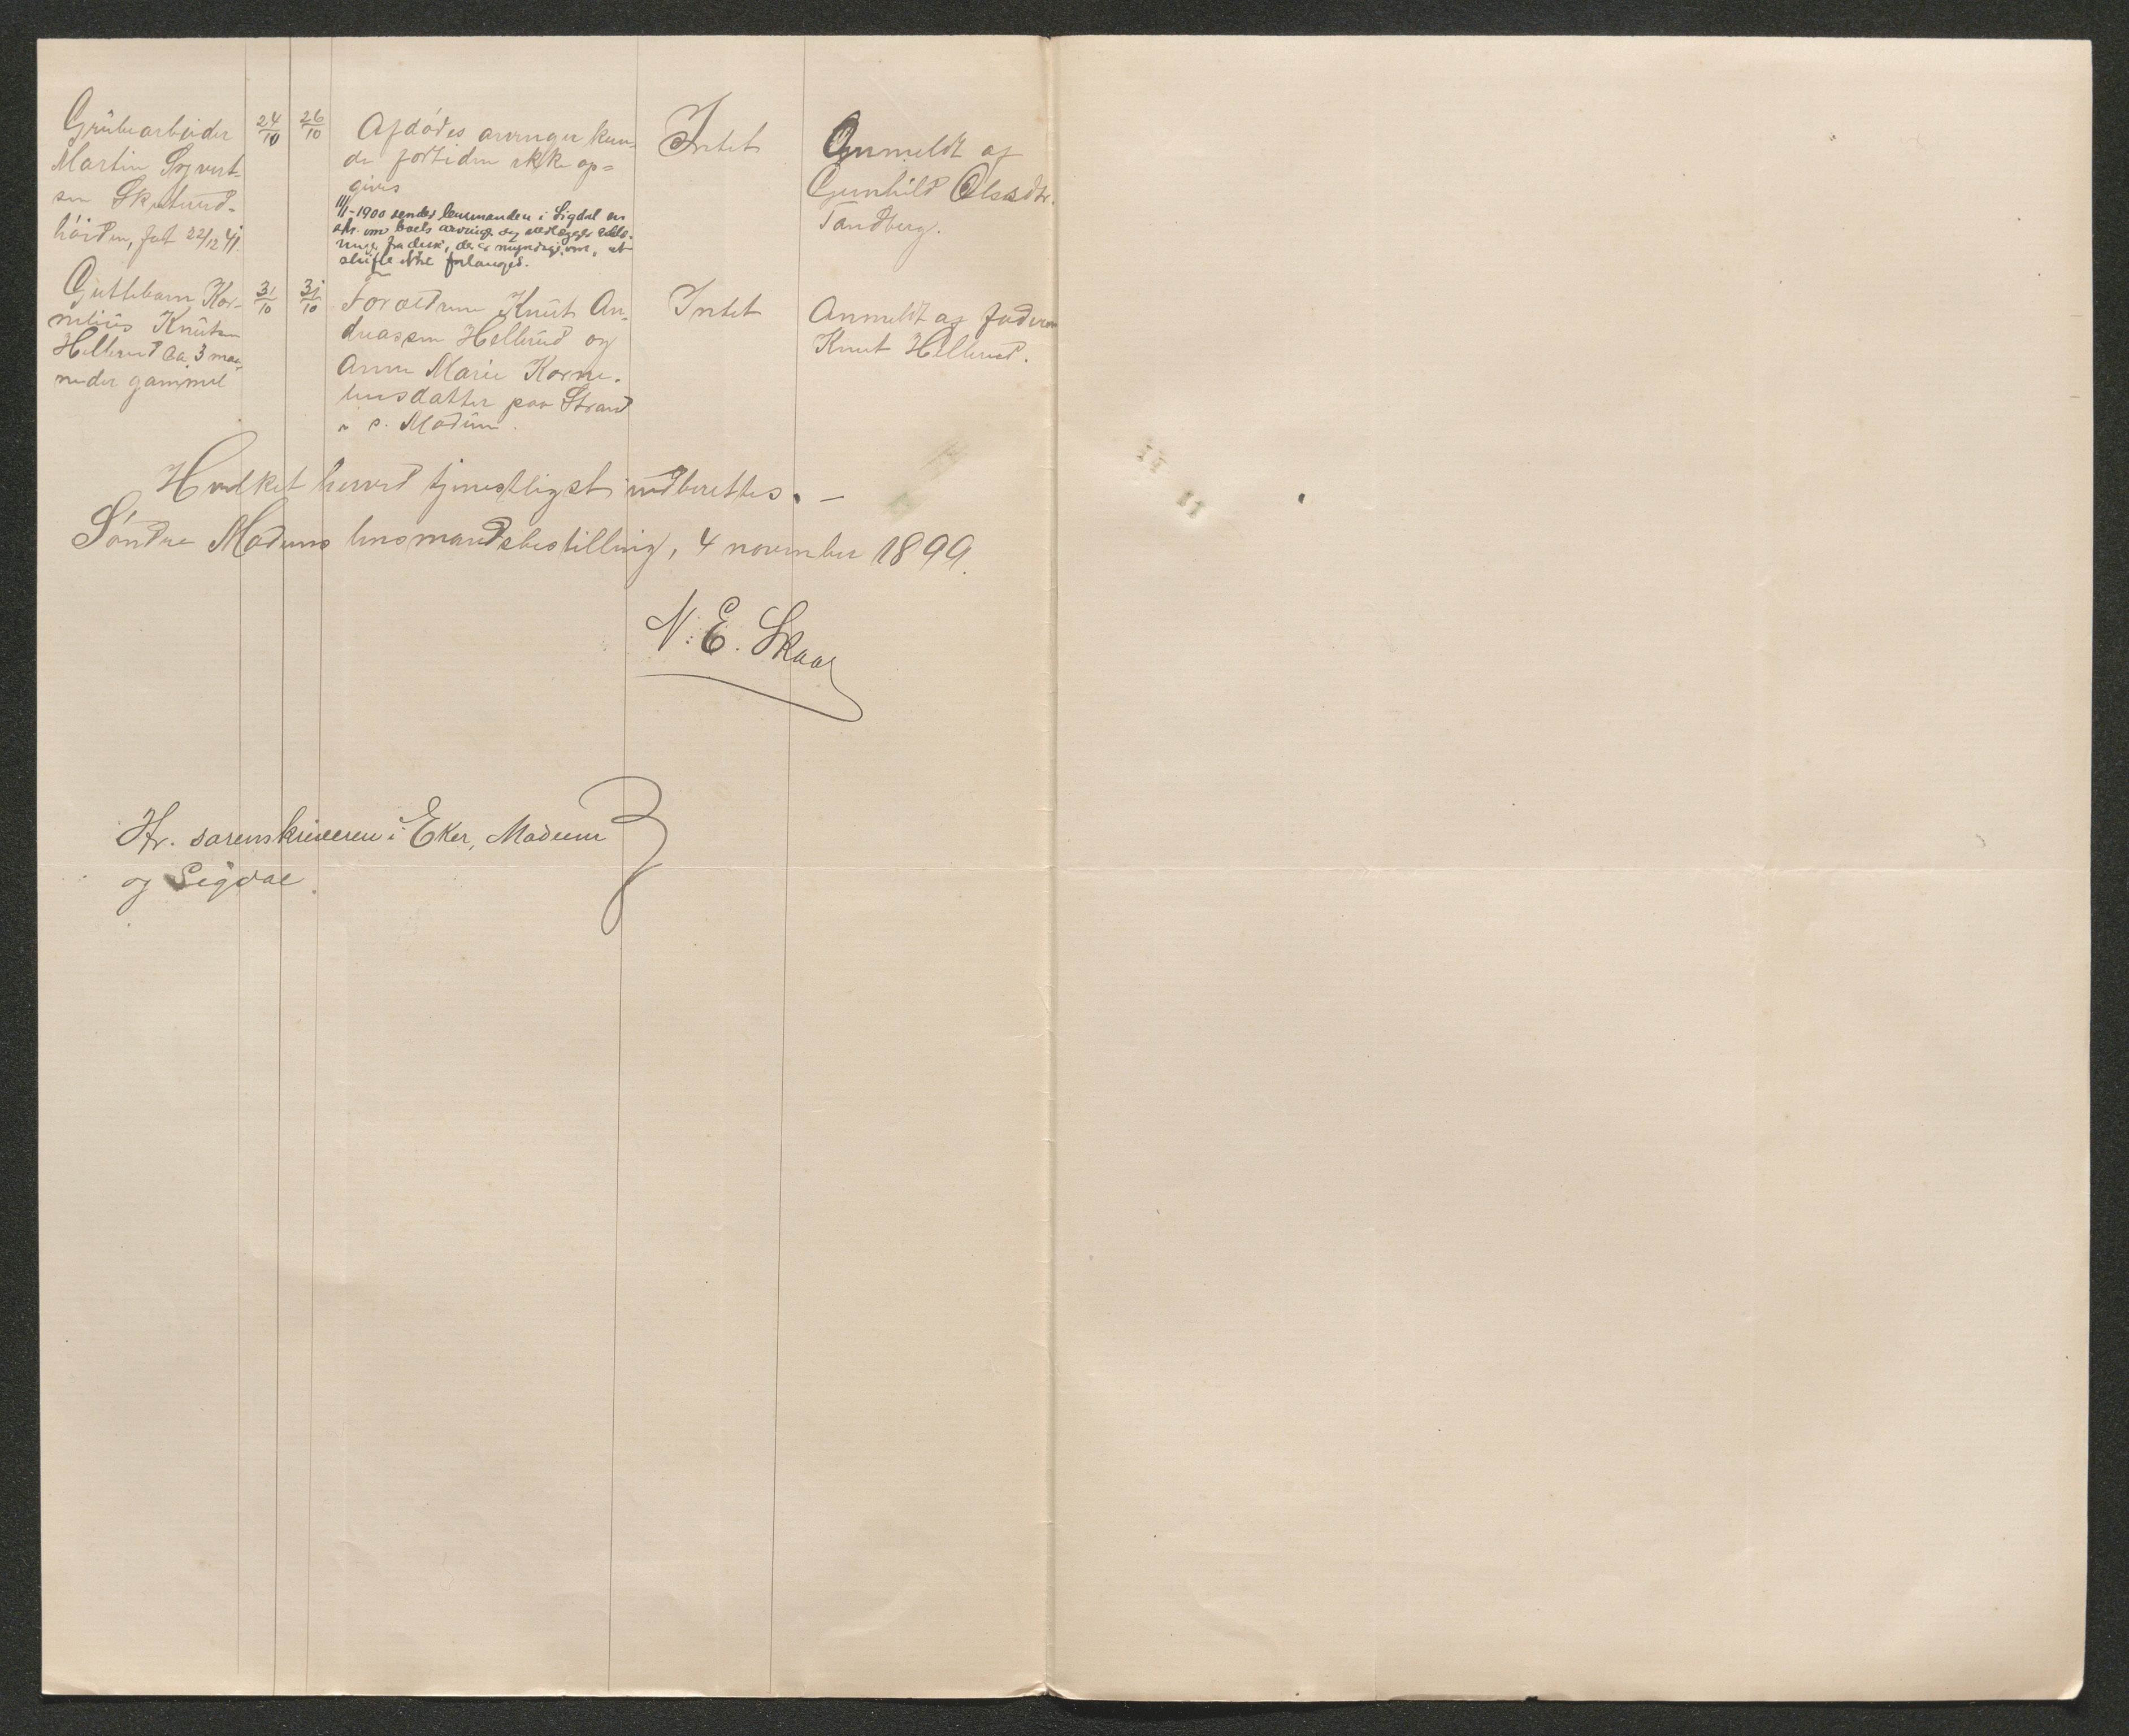 Grubearbeider
Martin Syvert-
sen
høiden, født 22/12 41.
24/10
26/10
Afdødes arvinger kun-
de fortiden ikke op=
gives
11/1-1900 sender lensmanden i Sigdal en
om boets arvinge og vedlægger
fra disse, de er myndige, om, at
skifte ikke forlanges.
Intet
Anmeldt af
Gunhild Olsdtr.
Tandberg.
Guttebarn Kor-
nelius Knutsen
Hellerud ca 3 maa-
neder gammel
31/10
31/10
Forældrene Knut An-
dreassen Hellerud og
Anne Marie Korne-
liusdatter paa Strand
i s. Modum.
Intet
Anmeldt af faderen
Knut Hellerud.
Hvilket herved tjenestligst indberettes. —
Søndre Modums lensmandsbestilling, 4 november 1899.
N. E. Skaar
Hr. sorenskriveren i Eker, Modum
og Sigdal.